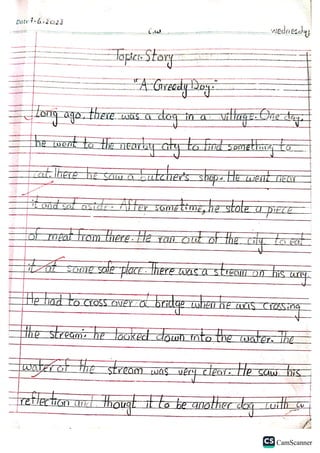 Date 7-6-2023
C.W
Wednesday
Topic:- Story
"A Greedy Dog."
Long ago. there was a dog in a village. One day.
he went to the nearby city to find something to
eat. There he saw a butcher's shop. He went near
it and sat aside. After sometime, he stole a piece
of meat from there. He ran out of the city to eat
it at some safe place. There was a stream on his way.
He had to cross over a bridge when he was crossing
the stream. he looked down into the water. The
water of the stream was very clear. He saw his
reflection and Though it to be another dog with a
CS CamScanner